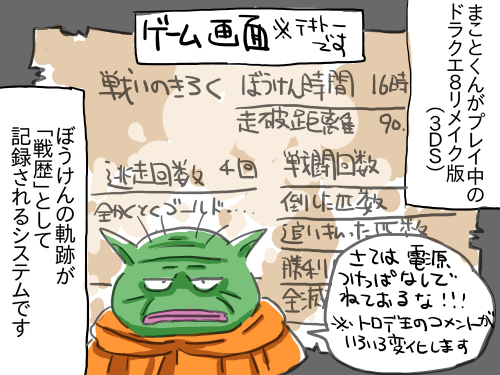 まことくんがプレイ中の
ドラクエ8リメイク版
(3DS)
ゲーム画面 ※テキトー
です
戦いのきろく
ぼうけん時間 16時
走破距離 90.
逃走回数 4回
戦闘回数
倒した匹数
追いはらった匹数
勝利
全滅
ぼうけんの軌跡が
「戦歴」として
記録されるシステムです
さては電源
つけっぱなしで
ねておるな!!!
※トロデ王のコメントが
いろいろ変化します